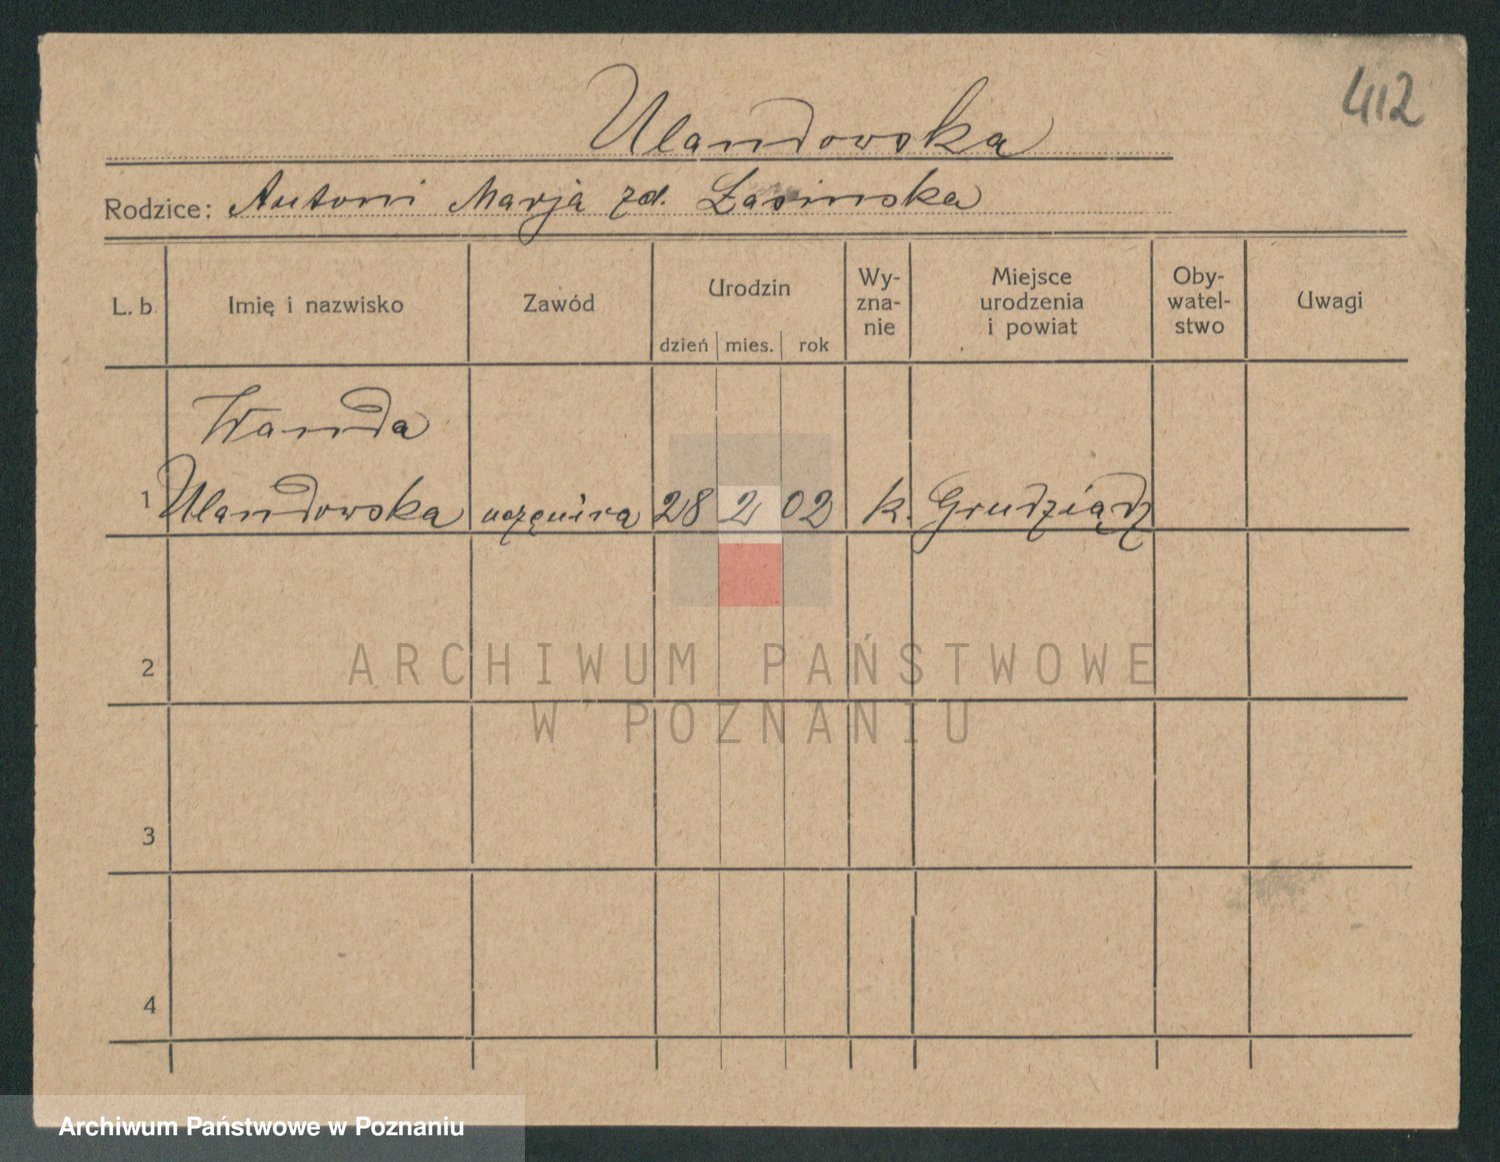 412
Ulandowska
Rodzice: Antoni Marja zd. Łasinska
L. b. Imię i nazwisko Zawód Urodzin Wy-zna-nie Miejsce urodzenia i powiat Oby-watel-stwo Uwagi
dzień mies. rok
Wanda
1 Ulandowska 28 2 02 k. Grudziądz
2
ARCHIWUM PAŃSTWOWE
W POZNANIU
3
4
Archiwum Państwowe w Poznaniu